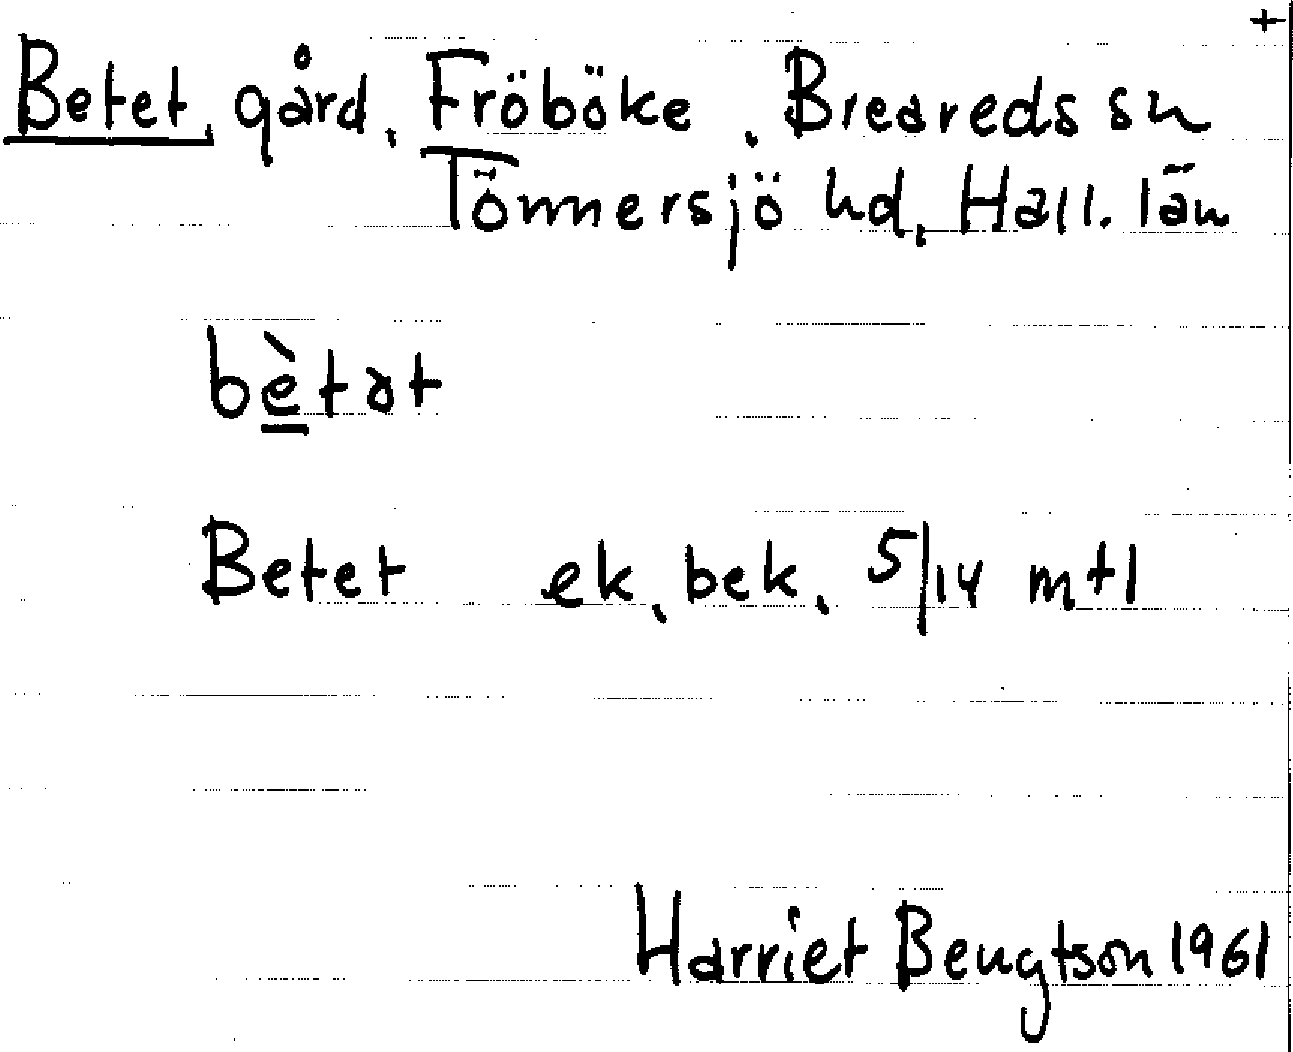 +
Betet, gård, Fröböke, Breareds sn
Tönnersjö hd, Hall. län
bètət
Betet ek, bek, 5/14 mtl
Harriet Bengtson 1961